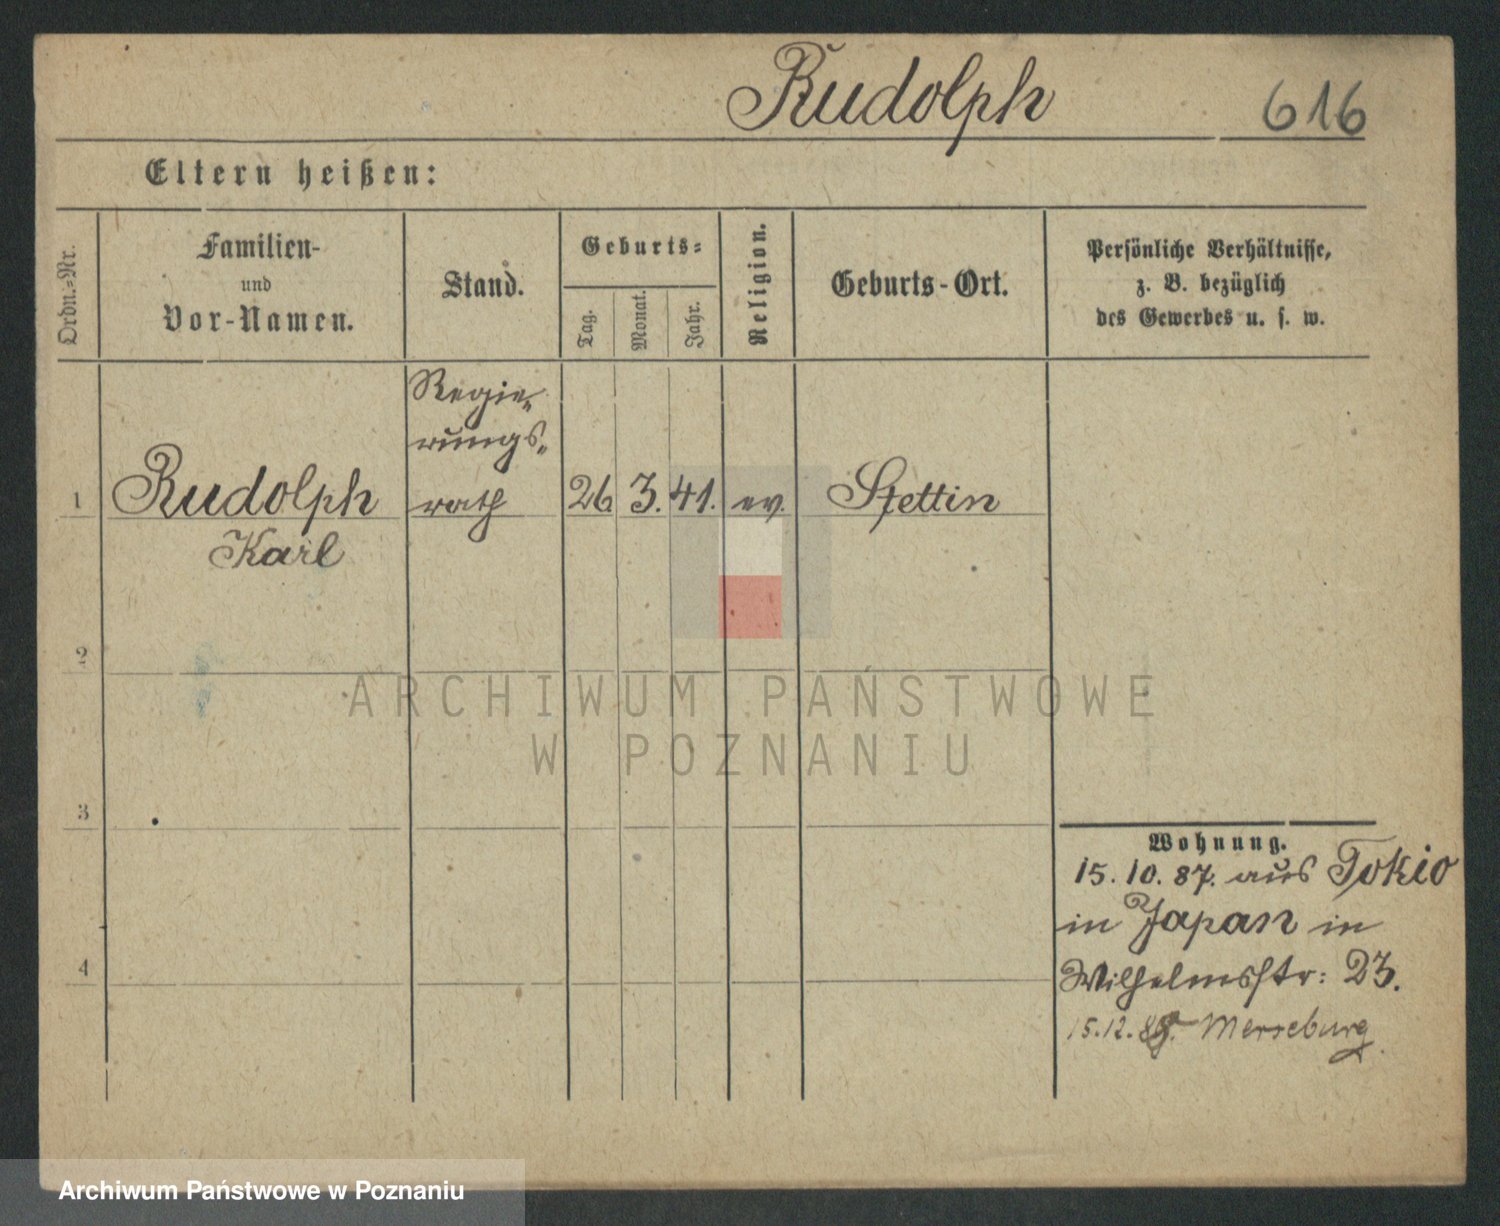 Rudolph 616
Eltern heißen:
Ordn.-Nr.
Familien-
und
Vor-Namen.
Stand.
Geburts-
Tag.
Monat.
Jahr.
Religion.
Geburts-Ort.
Persönliche Verhältnisse,
z. B. bezüglich
des Gewerbes u. s. w.
Regie-
rungs-
1 Rudolph rath 26. 3. 41. ev. Stettin
Karl
2
ARCHIWUM PAŃSTWOWE
W POZNANIU
3
Wohnung.
15. 10. 87. aus Tokio
in Japan in
4 Wilhelmsstr: 23.
15. 12. Merseburg
Archiwum Państwowe w Poznaniu